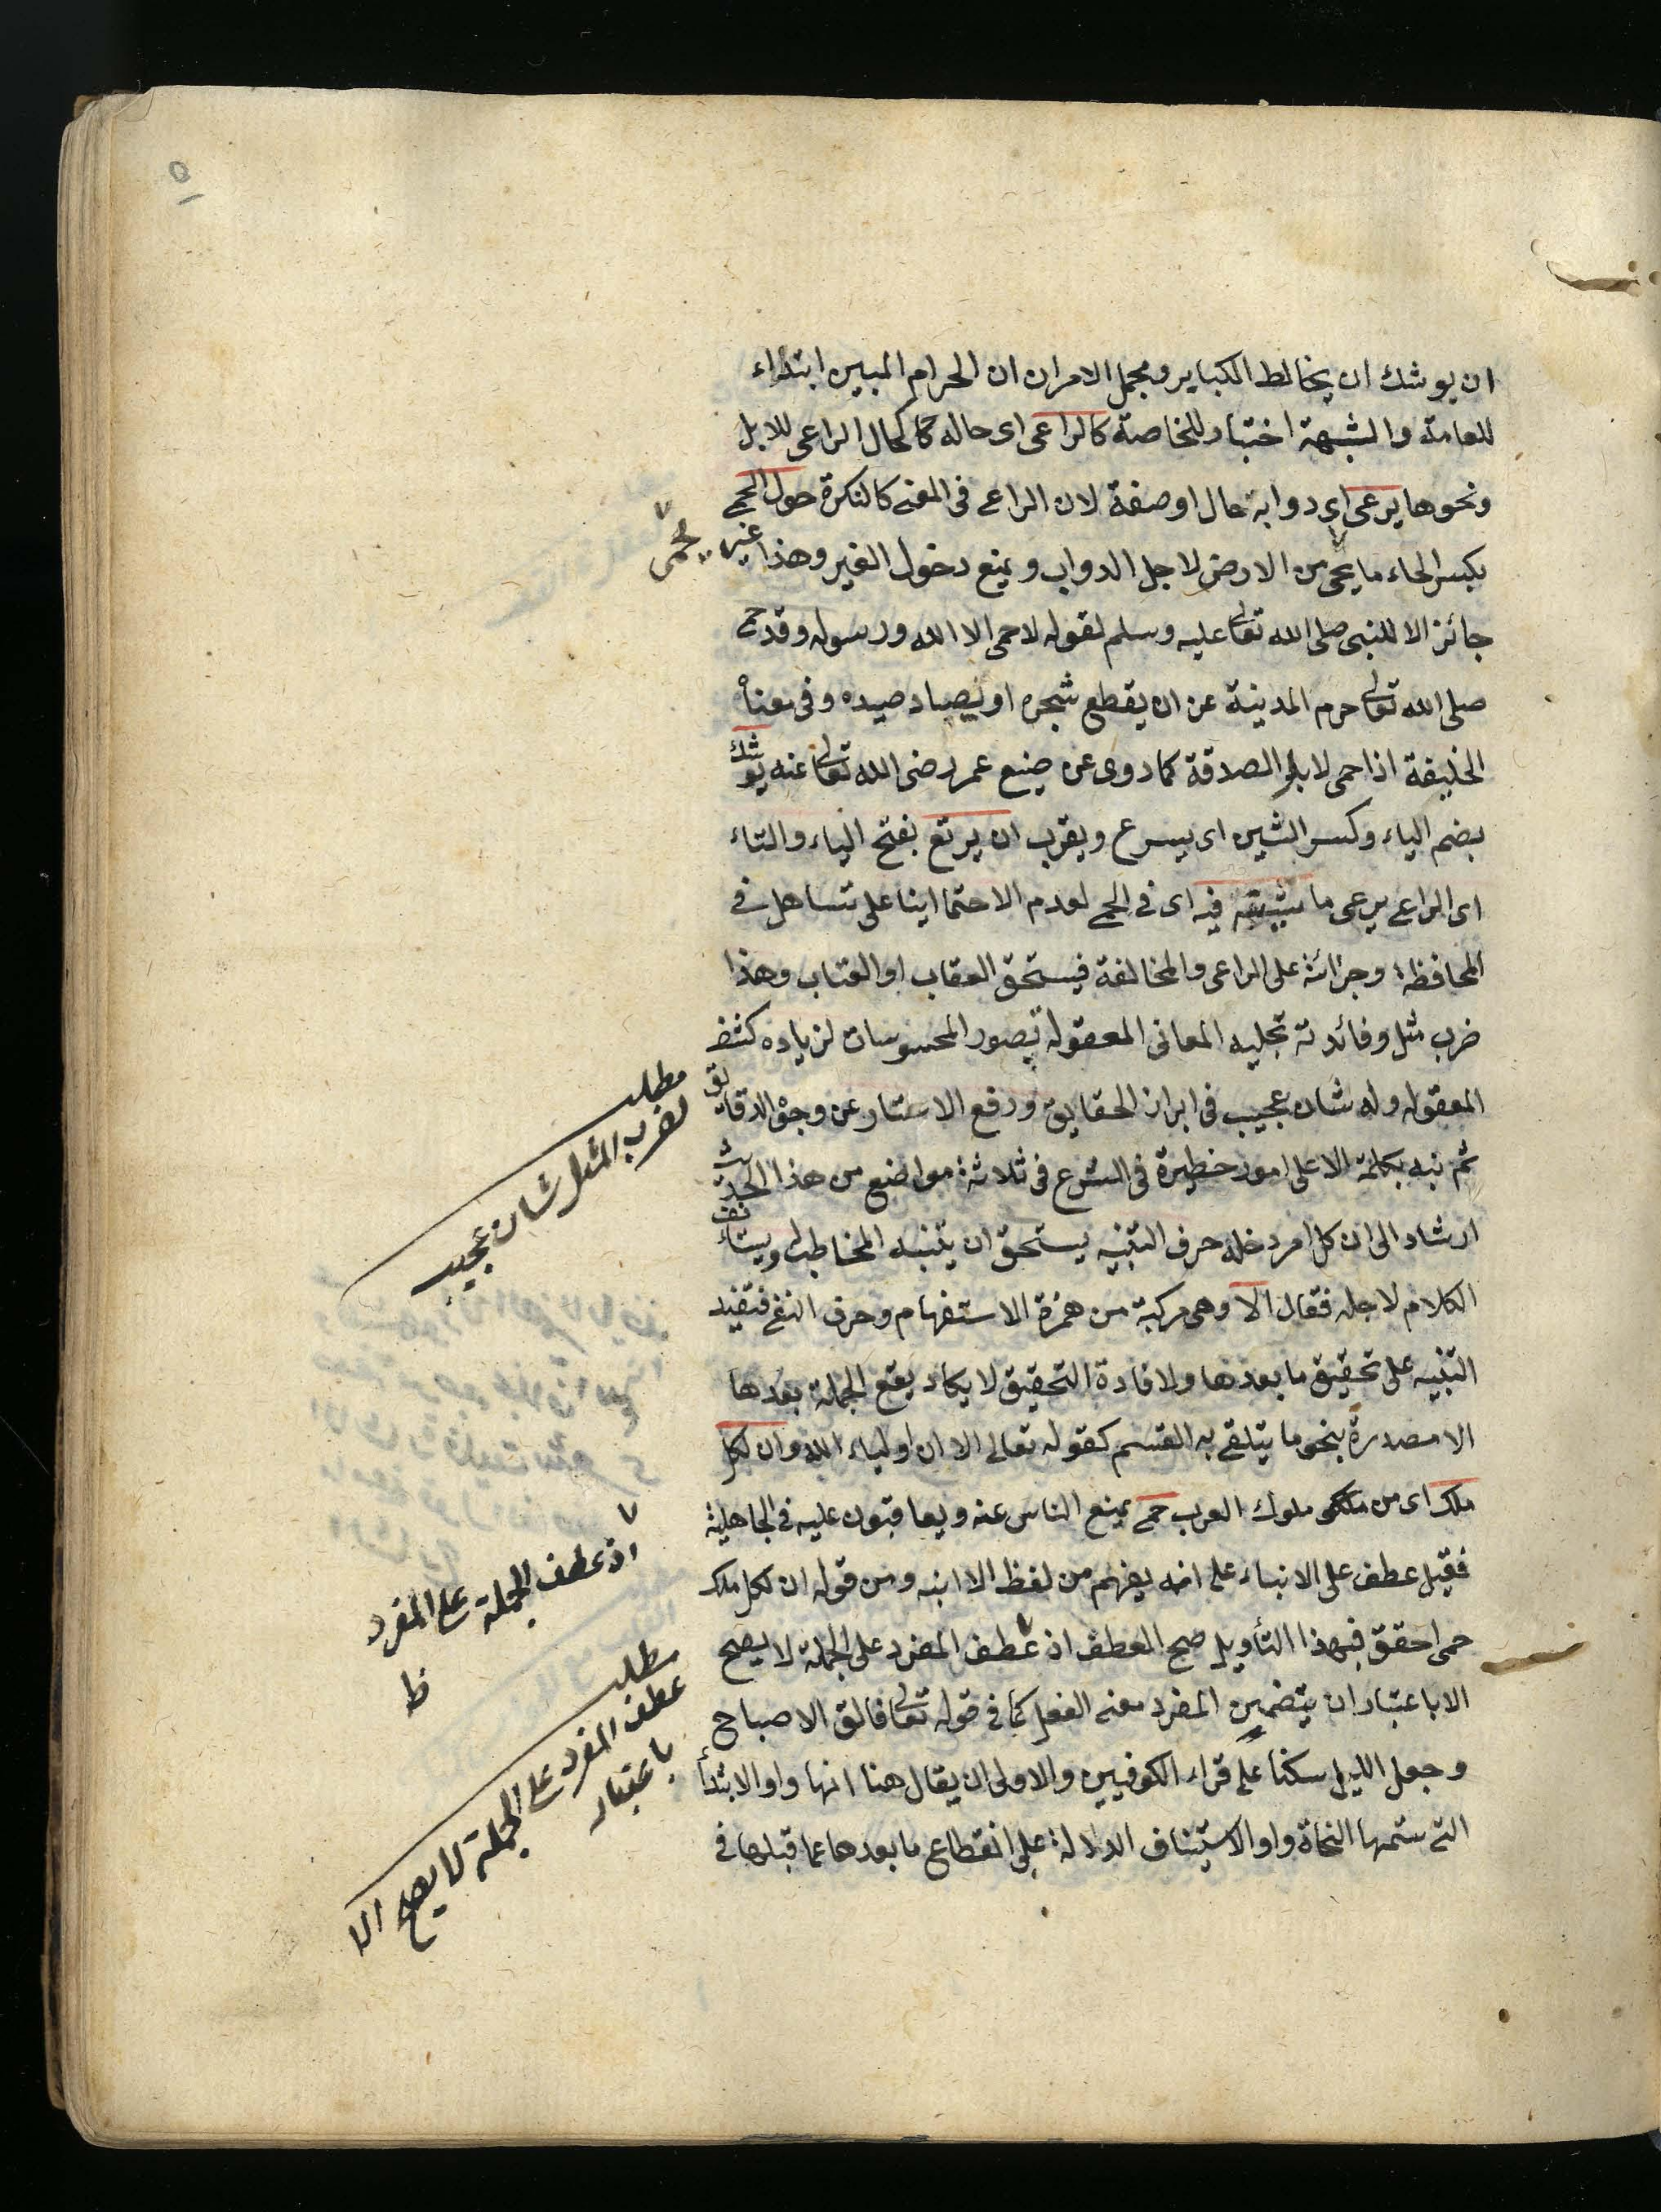 ٥
ان يوشك ان يخالط الكباير ومجمل الامران ان الحرام المبين ابتداء
للعامة والشبهة اختبار للخاصة كالراعى اى حاله كما كحال الراعى للابل
ونحوها يرعى اى دوابه حال او صفة لان الراعى فى المعنى كالنكرة حول الحمى
بكسر الحاء ما يحمى من الارض لاجل الدواب و يمنع دخول الغير وهذا غير
جائز الا للنبى صلى الله تعالى عليه وسلم لقوله لا حمى الا لله ورسوله وقد حمى
صلى الله تعالى حرم المدينة عن ان يقطع شجره او يصاد صيده وفى معناه
الخليفة اذا حمى لابل الصدقة كما روى عن صنيع عمر رضى الله تعالى عنه يوشك
بضم الياء وكسر الشين اى يسرع ويقرب ان يرتع بفتح الياء والتاء
اى الراعى يرعى ماشيته فيه اى فى الحمى لعدم الاحتما ابنا على تساهل فى
المحافظة وجرائة على الراعى والمخالفة فيستحق العقاب او العتاب وهذا
ضرب مثل وفائدته تجليه المعانى المعقوله بصور المحسوسات لزياده كشف
المعقوله وله شان عجيب فى ابراز الحقايق ورفع الاستار عن وجوه الدقايق
ثم نبه بكلمة الا على امور خطيرة فى الشرع فى ثلاثة مواضع من هذا الحديث
ارشاد الى ان كل امر دخله حرف التنبيه يستحق ان يتنبه المخاطب له ويستأنف
الكلام لاجله فقال الا وهى مركبة من همزة الاستفهام وحرف النفى فتفيد
التنبيه على تحقيق ما بعدها ولافادة التحقيق لا يكاد يقع الجملة بعدها
الا مصدرة بنحو ما يتلقى به القسم كقوله تعالى الا ان اولياء الله وان لكل
ملك اى من ملكى ملوك العرب حمى يمنع الناس عنه ويعاقبون عليه فى الجاهلية
فقيل عطف على الانباء على انه يفهم من لفظ الا انبه ومن قوله ان لكل ملك
حمى احقق فبهذا التأويل صح العطف اذ عطف المفرد على الجملة لا يصح
الا باعتبار ان يتضمن المفرد معنى الفعل كما فى قوله تعالى فالق الاصباح
وجعل الليل سكنا على قراء الكوفيين والاولى ان يقال هنا انها واو الابتدأ
التى ستمها النحاة واو الاستيناف الدلالة على انقطاع ما بعدها عما قبلها فى
يحمى
مطلب
لضرب المثل شان عجيب
اذ عطف الجملة على المفرد
ظ
مطلب
عطف المفرد على الجملة لا يصح الا
باعتبار